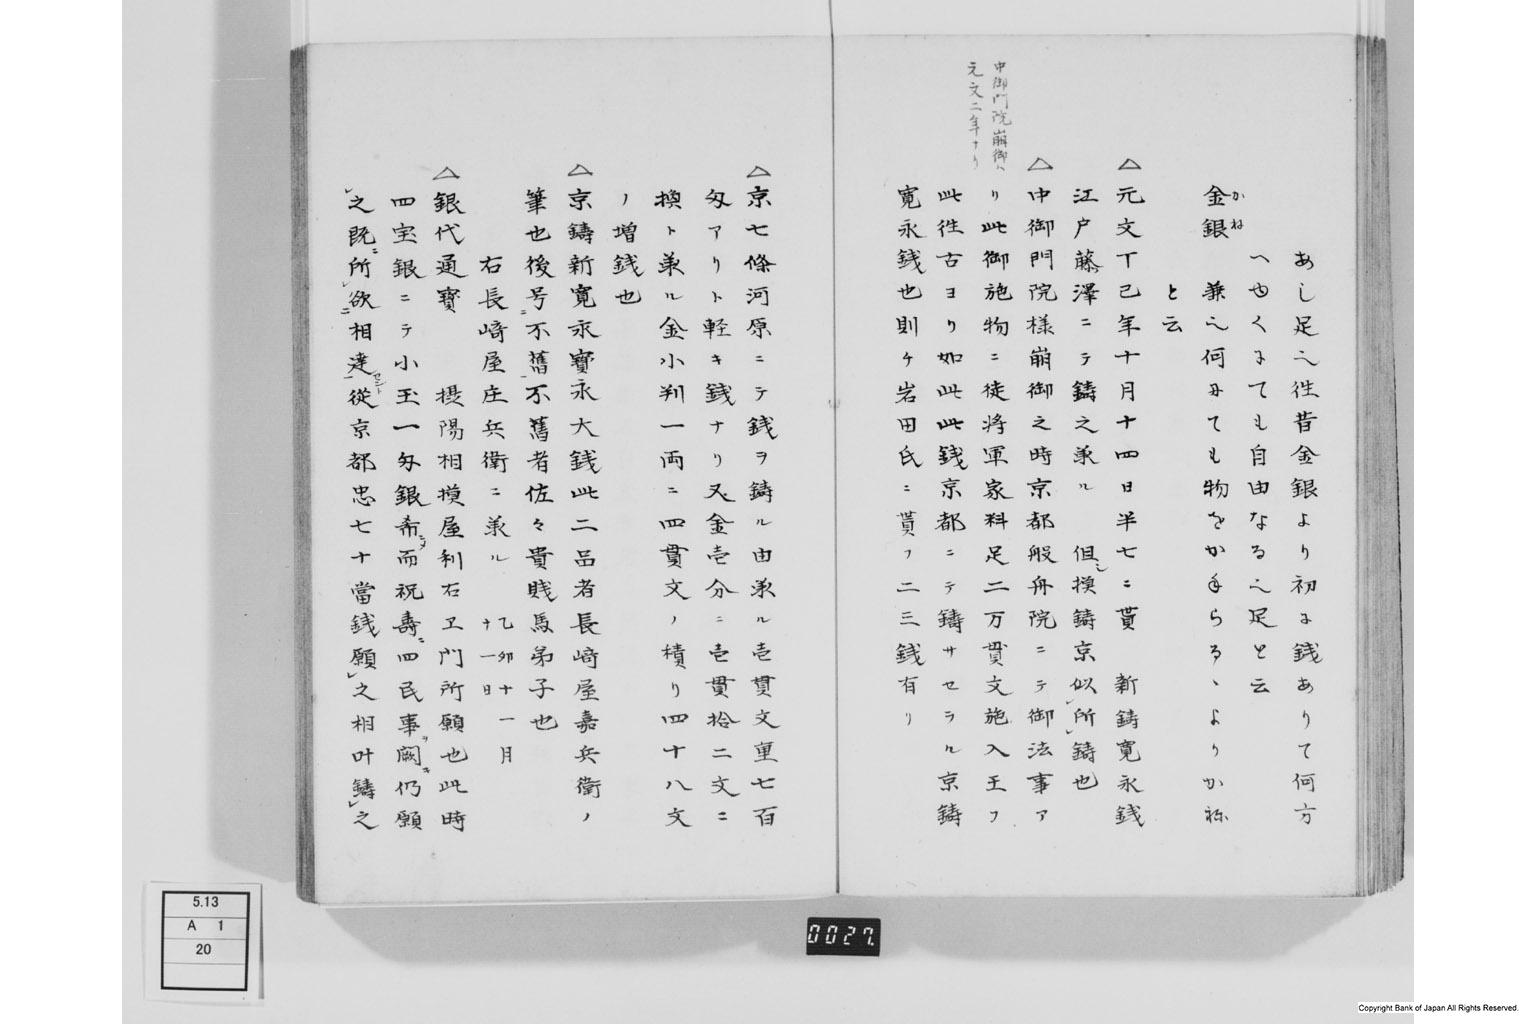 あし足へ徃昔金銀より初に錢ありて何方
へやくにても自由なるへ足と云
金銀 兼へ何にても物をかゆらるゝよりか祢
かね
と云
中御門院崩御ハ
元文二年ナリ
△元文丁巳年十月十四日半七ニ貰 新鋳寛永銭
江戸藤澤ニテ鋳之兼ル 但シ摸鋳京似所鋳也
△中御門院様崩御之時京都般舟院ニテ御法事ア
リ此御施物ニ徒将軍家料足二万貫文施入王フ
此徃古ヨリ如此此銭京都ニテ鋳サセラル京鋳
寛永銭也則チ岩田氏ニ貰フ二三銭有リ
△京七條河原ニテ銭ヲ鋳ル由承ル壱貫文重七百
匁アリト軽キ銭ナリ又金壱分ニ壱貫拾二文ニ
換ト承ル金小判一両ニ四貫文ノ積リ四十八文
ノ増銭也
△京鋳新寛永寳永大銭此二品者長﨑屋嘉兵衛ノ
筆也後号ニ不舊不舊者佐々貴賤馬弟子也
右長﨑屋庄兵衛ニ承ル 乙卯十一月
十一日
△銀代通寳 摂陽相摸屋利右ヱ門所願也此時
四宝銀ニテ小玉一匁銀希ヌ而祝壽ニ四民事ヲ闕キ仍願
之既ニ所欲ニ相達セント從京都忠七十當銭願之相叶鋳之
5.13
A 1
20
0027.
Copyright Bank of Japan All Rights Reserved.